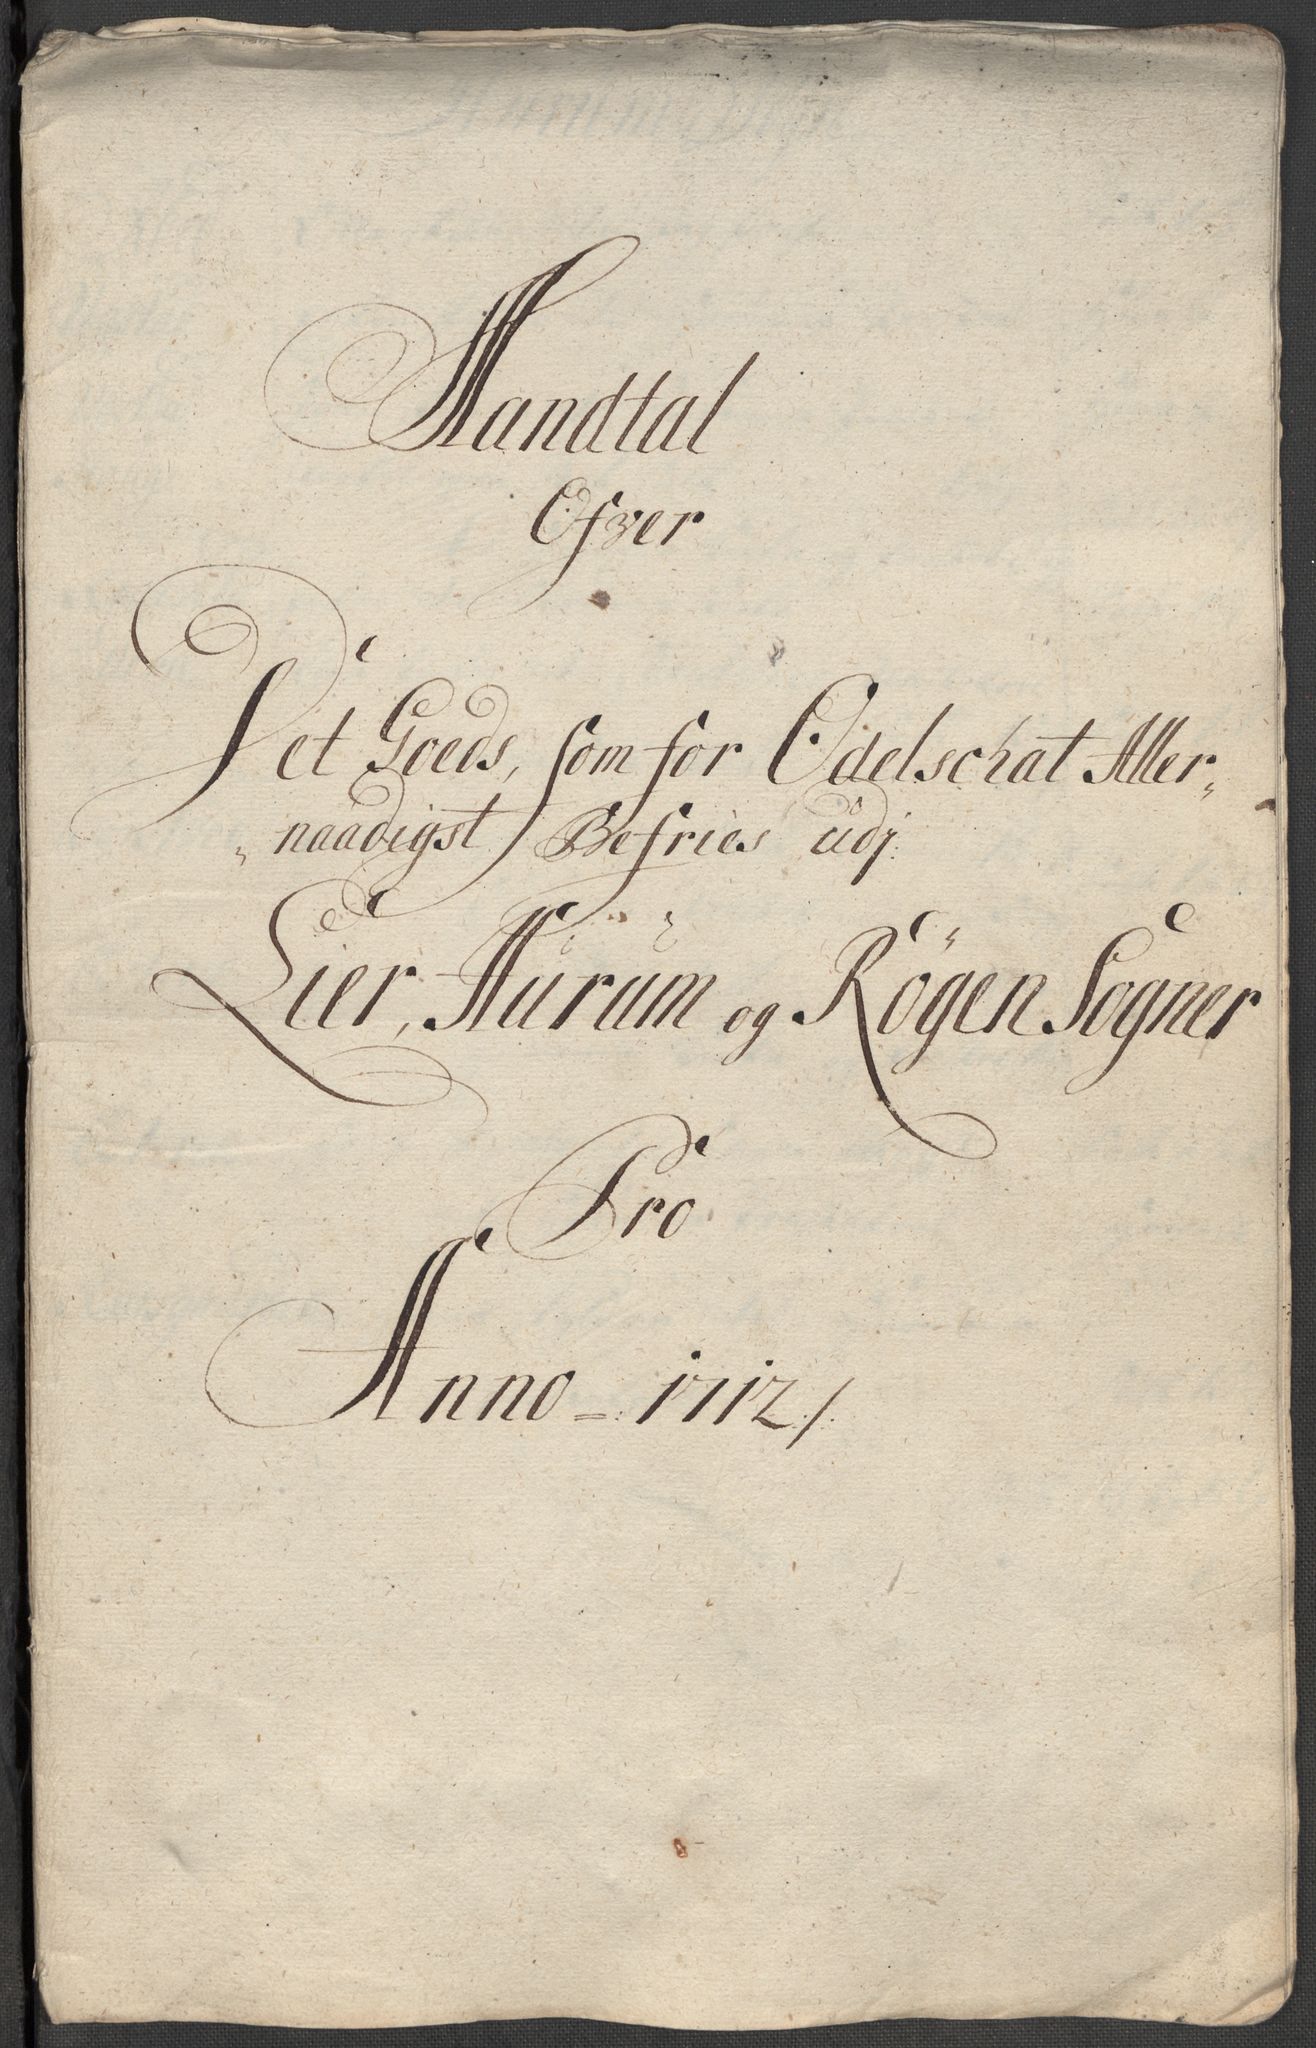 Mandtal
Ofver
Det Goeds, som for Odelschat Aller„
„naadigst Befries udj
Lier, Hurum og Rögen Sogner
Pro
Anno =: 1712 /: